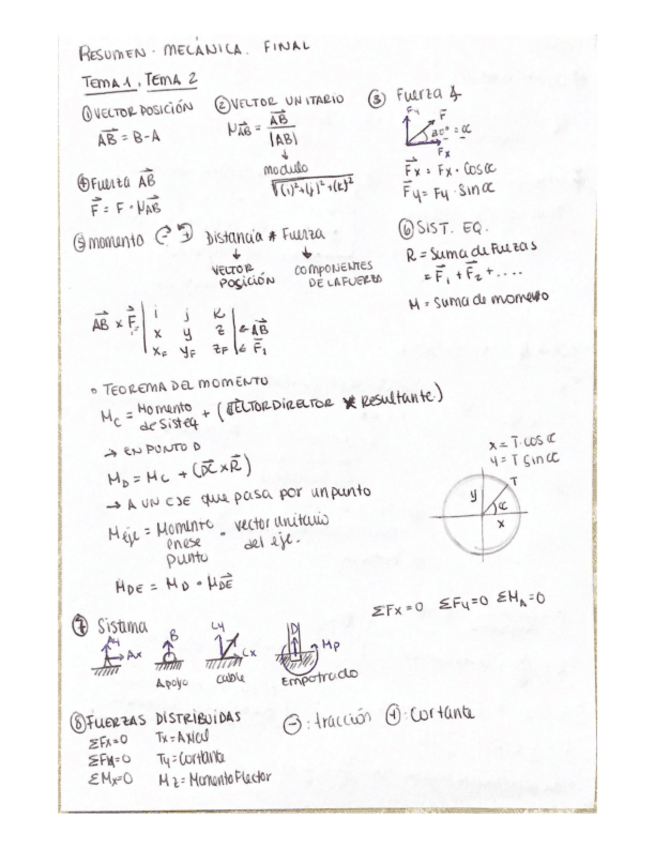 RESUMEN. MECÁNICA. FINAL
TEMA 1, TEMA 2
① VECTOR POSICIÓN
AB = B-A
② VECTOR UNITARIO
μAB = AB / |AB|
↓
modulo
√(i)²+(j)²+(k)²
③ Fuerza
Fy
F
30° = α
Fx
Fx = Fx · Cosα
Fy = Fy · Sinα
④ Fuerza AB
F = F · μAB
⑤ momento
Distancia * Fuerza
↓ ↓
VECTOR POSICIÓN
COMPONENTES DE LA FUERZA
AB x F₁
i j k
x y z ← AB
xF yF zF ← F₁
⑥ SIST. EQ.
R = Suma de Fuerzas
= F₁ + F₂ + ....
M = Suma de momento
• TEOREMA DEL MOMENTO
Mc = Momento de Sisteq + (VECTOR DIRECTOR x Resultante)
→ EN PUNTO D
MD = Mc + (DC x R)
→ A UN EJE que pasa por un punto
Meje = Momento en ese punto · vector unitario del eje.
MDE = MD · μDE
x = T · cos α
y = T sin α
T
y
α
x
ΣFx=0 ΣFy=0 ΣMA=0
⑦ Sistema
Ay
Ax
B
Apoyo
Cy
Cx
cable
D
MD
Empotrado
⑧ FUERZAS DISTRIBUIDAS
ΣFx=0 Tx = Axial
ΣFy=0 Ty = Cortante
ΣMx=0 Mz = Momento Flector
⊖: tracción ⊕: Cortante